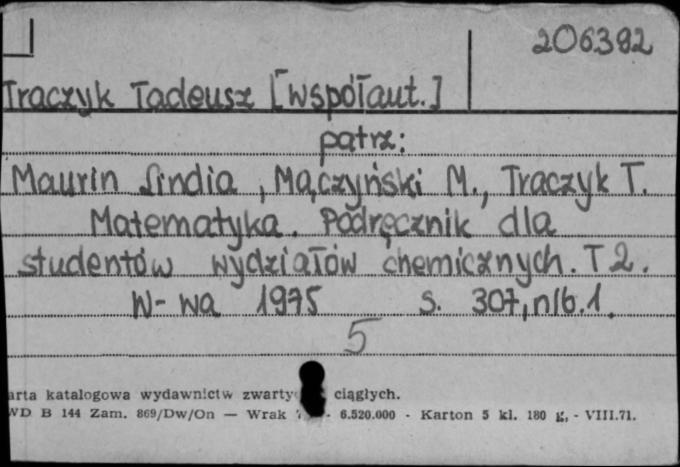 206392
Traczyk Tadeusz [współaut.]
patrz:
Maurin Lindia, Mączyński M., Traczyk T.
Matematyka. Podręcznik dla
studentów wydziałów chemicznych. T 2.
W-wa 1975 s. 307, nlb. 1.
5
arta katalogowa wydawnictw zwarty ciągłych.
WD B 144 Zam. 869/Dw/On — Wrak - 6.520.000 - Karton 5 kl. 180 g, - VIII.71.